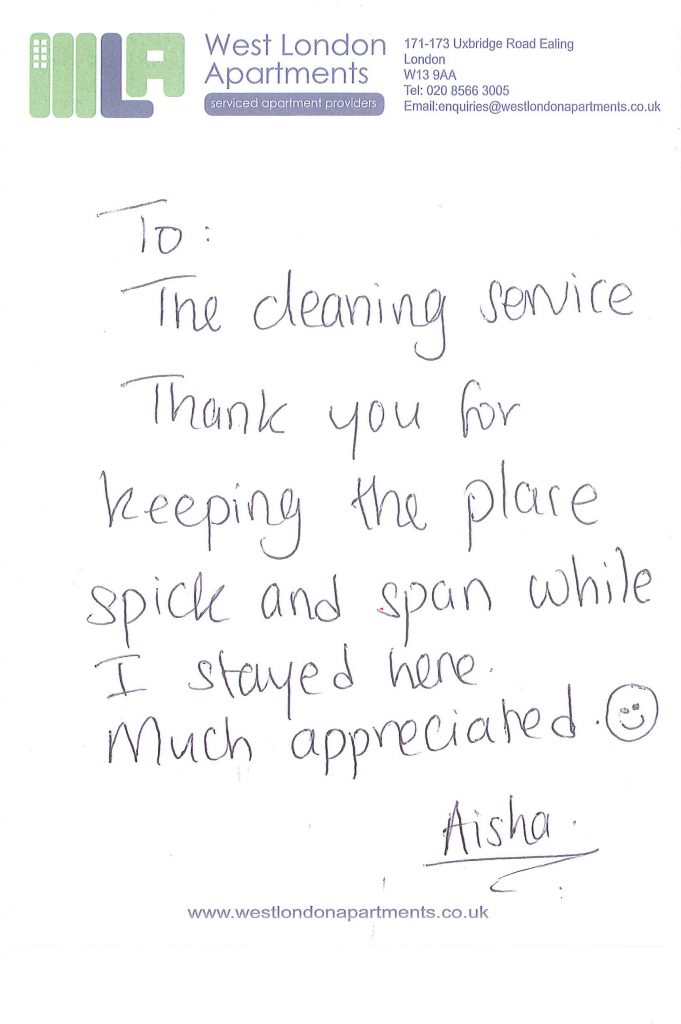 WLA
West London
Apartments
serviced apartment providers
171-173 Uxbridge Road Ealing
London
W13 9AA
Tel: 020 8566 3005
Email:enquiries@westlondonapartments.co.uk
To:
The cleaning service
Thank you for
keeping the place
spick and span while
I stayed here.
Much appreciated.
Aisha.
www.westlondonapartments.co.uk